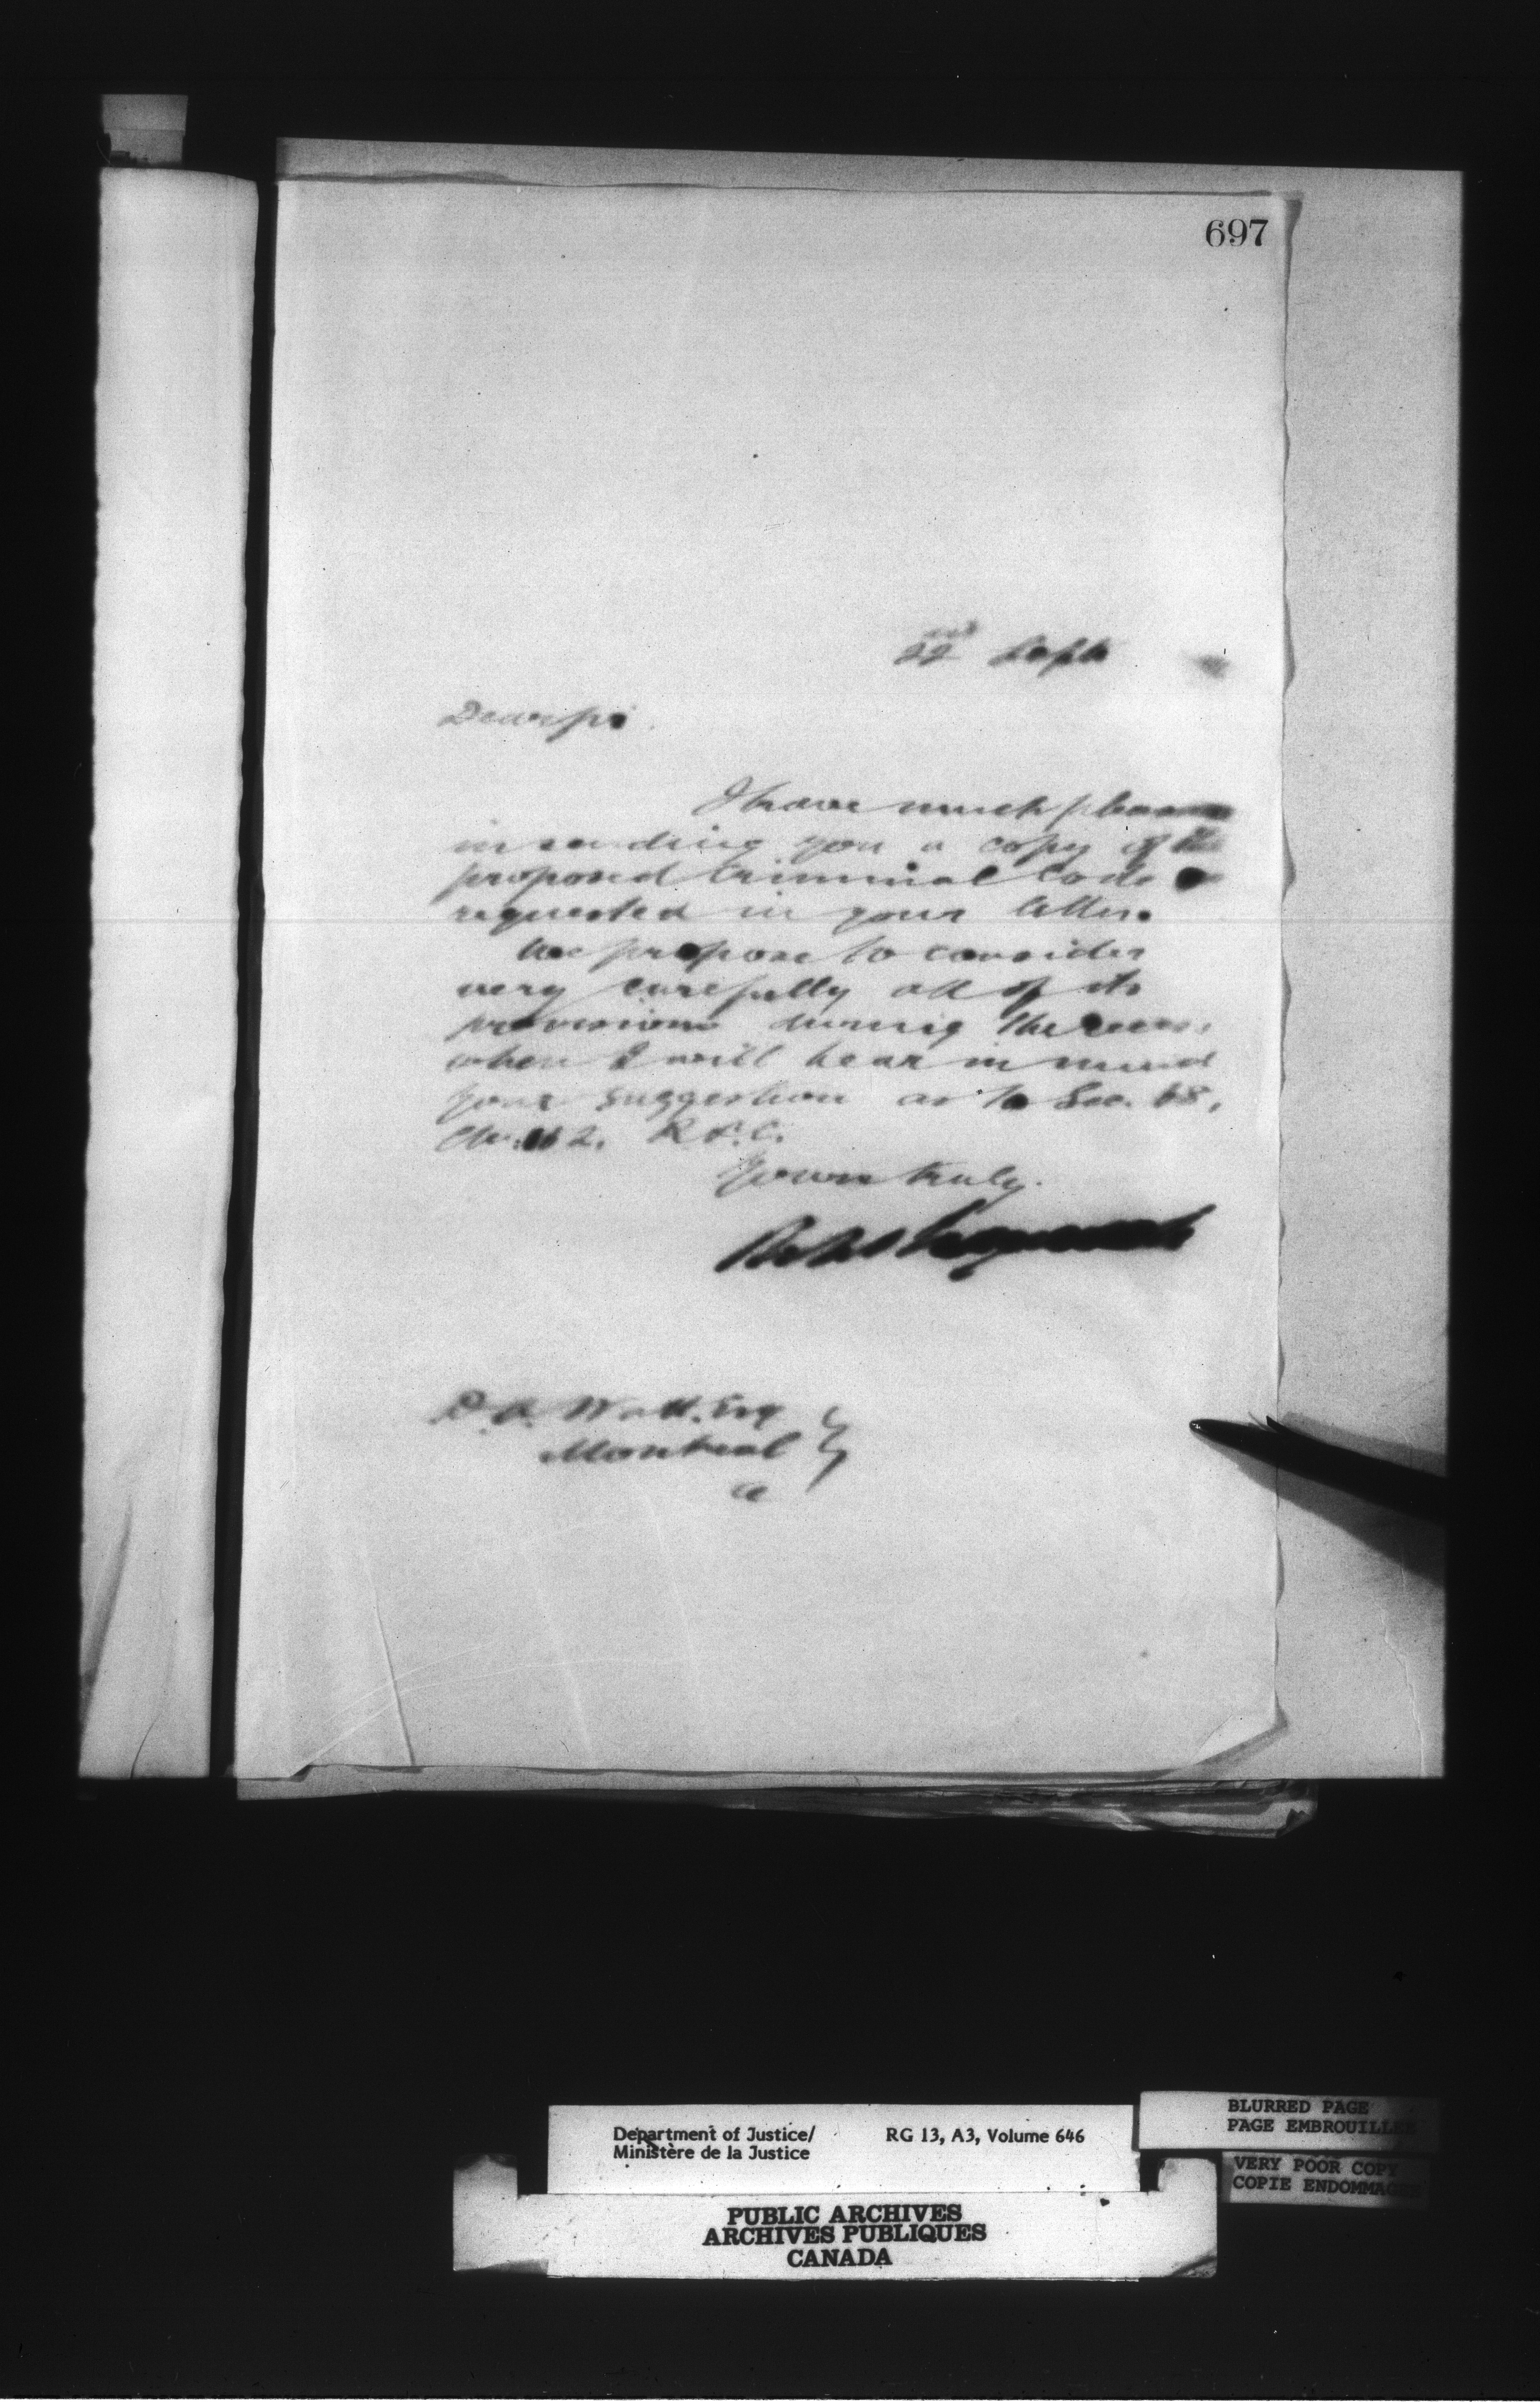 697
22nd Sept
Dear Sir.
I have much pleasure
in sending you a copy of the
proposed Criminal Code
requested in your letter.
We propose to consider
very carefully all of its
provisions during the recess,
when I will bear in mind
your suggestion as to Sec. 68,
R.S.C.
Yours truly.
D. A. Watt, Esq
Montreal
Department of Justice/ RG 13, A3, Volume 646
Ministère de la Justice
BLURRED PAGE
PAGE EMBROUILLEE
VERY POOR COPY
COPIE ENDOMMAGEE
PUBLIC ARCHIVES
ARCHIVES PUBLIQUES
CANADA